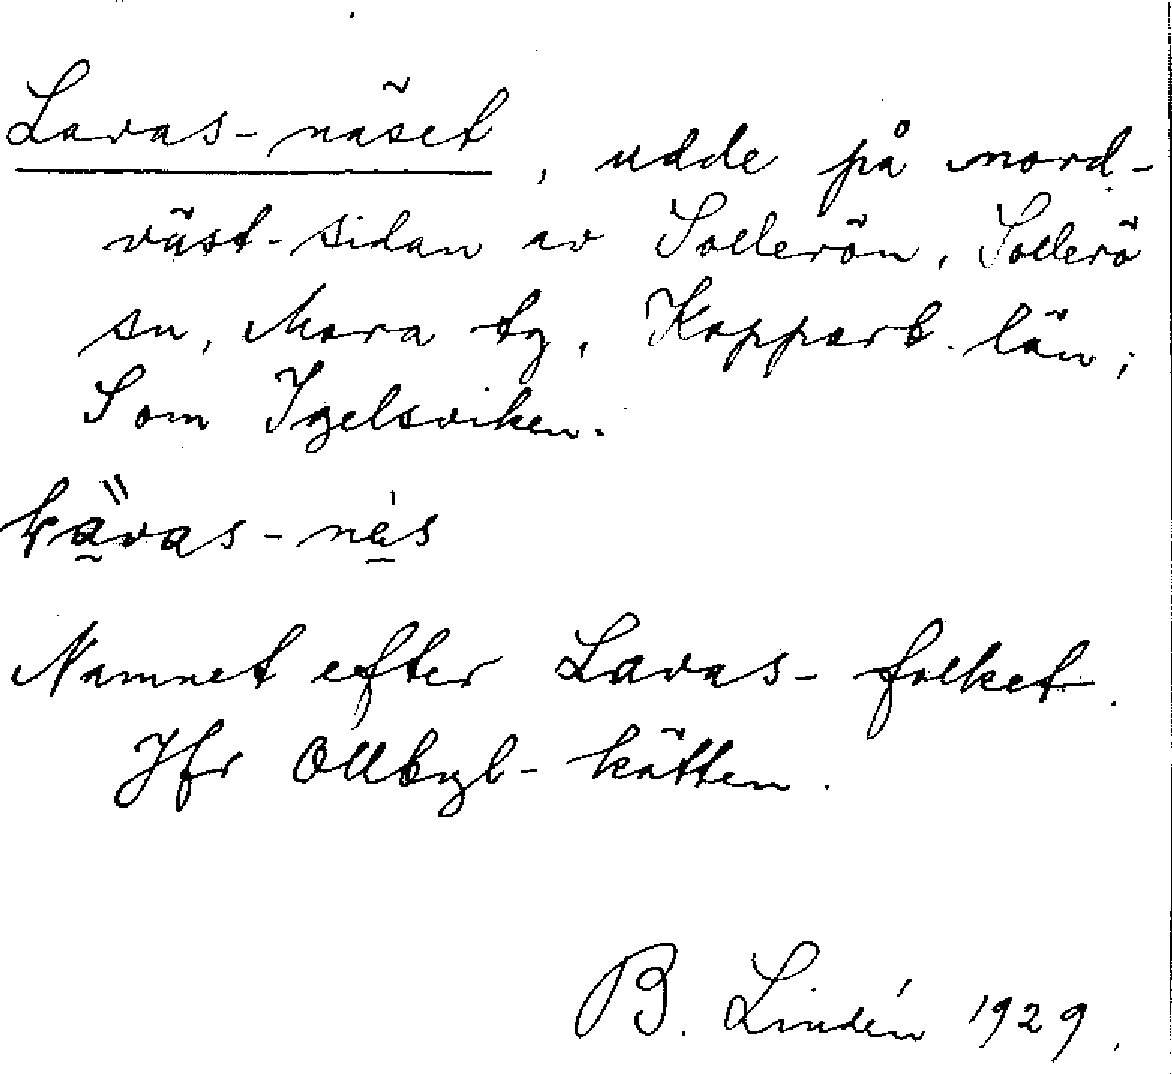 Lavas-näset, udde på nord-
väst-sidan av Sollerön, Sollerö
sn, Mora tg, Kopparb. län;
Som Igelsviken.
Namnet efter Lavas-folket.
Jfr Ollbyl-kätten.
B. Lindén 1929.